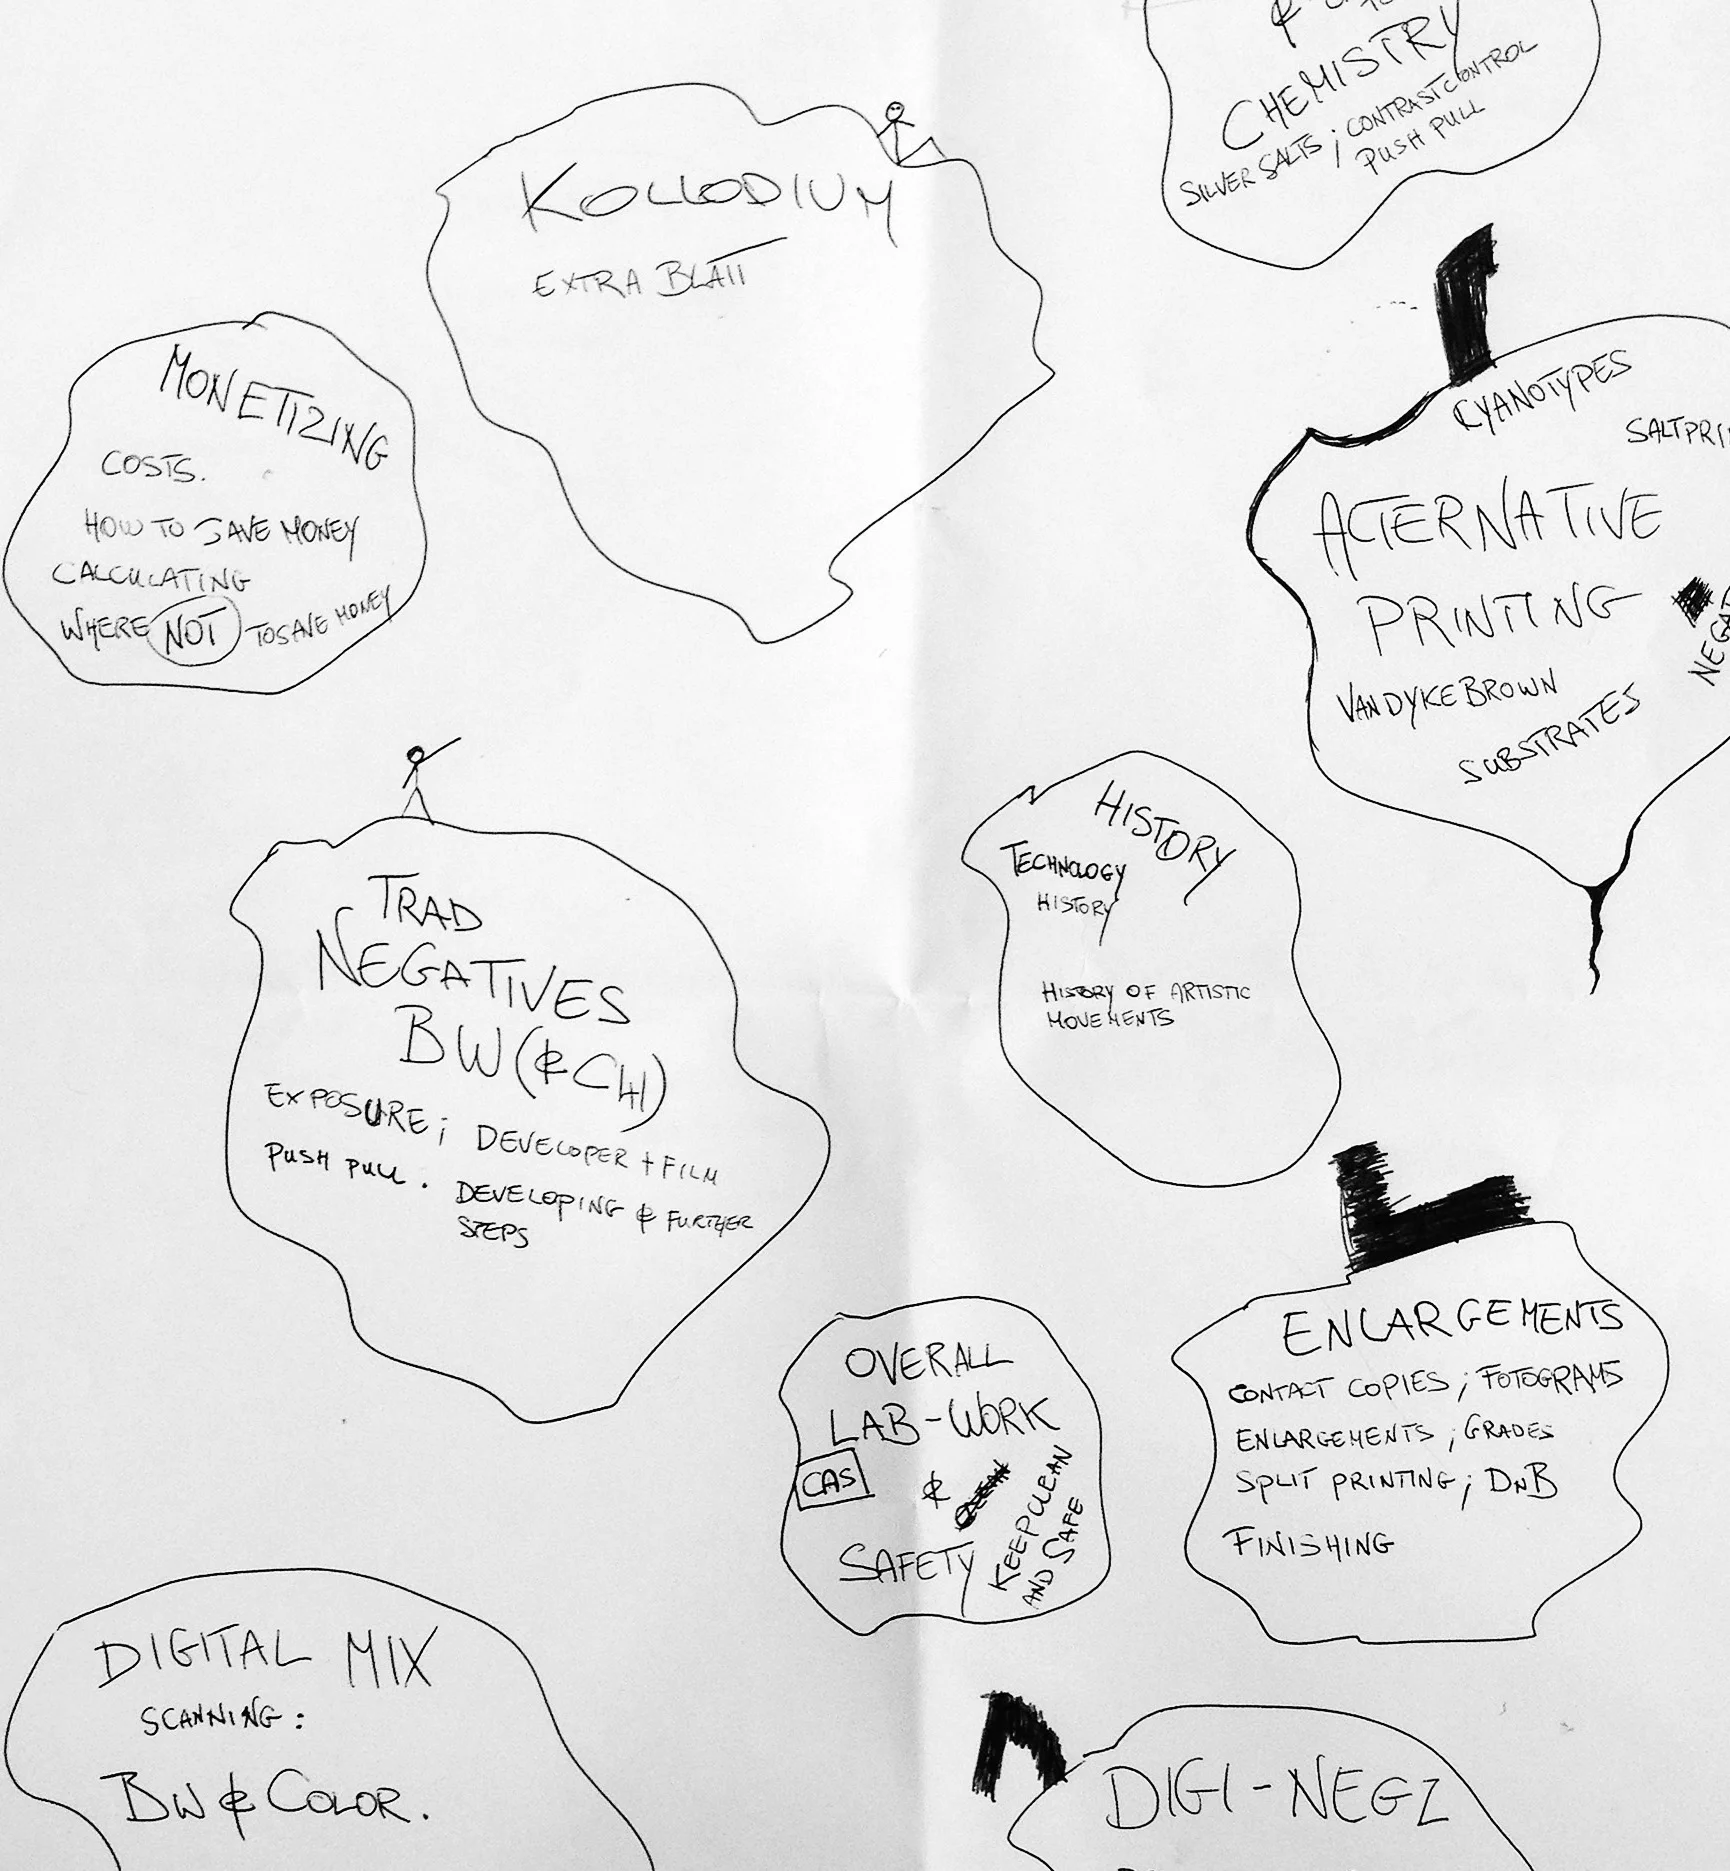 &
CHEMISTRY
SILVER SALTS; CONTRASTCONTROL
PUSH PULL
KOLLODIUM
EXTRA BLATT
MONETIZING
COSTS.
HOW TO SAVE MONEY
CALCULATING
WHERE NOT TO SAVE MONEY
CYANOTYPES
SALTPRI
ALTERNATIVE
PRINTING
NEGAT
VANDYKEBROWN
SUBSTRATES
HISTORY
TECHNOLOGY
HISTORY
HISTORY OF ARTISTIC
MOVEMENTS
TRAD
NEGATIVES
BW (& C41)
EXPOSURE; DEVELOPER + FILM
PUSH PULL. DEVELOPING & FURTHER
STEPS
OVERALL
LAB-WORK
CAS &
SAFETY
KEEP CLEAN
AND SAFE
ENLARGEMENTS
CONTACT COPIES; FOTOGRAMS
ENLARGEMENTS; GRADES
SPLIT PRINTING; DNB
FINISHING
DIGITAL MIX
SCANNING:
BW & COLOR.
DIGI-NEGZ